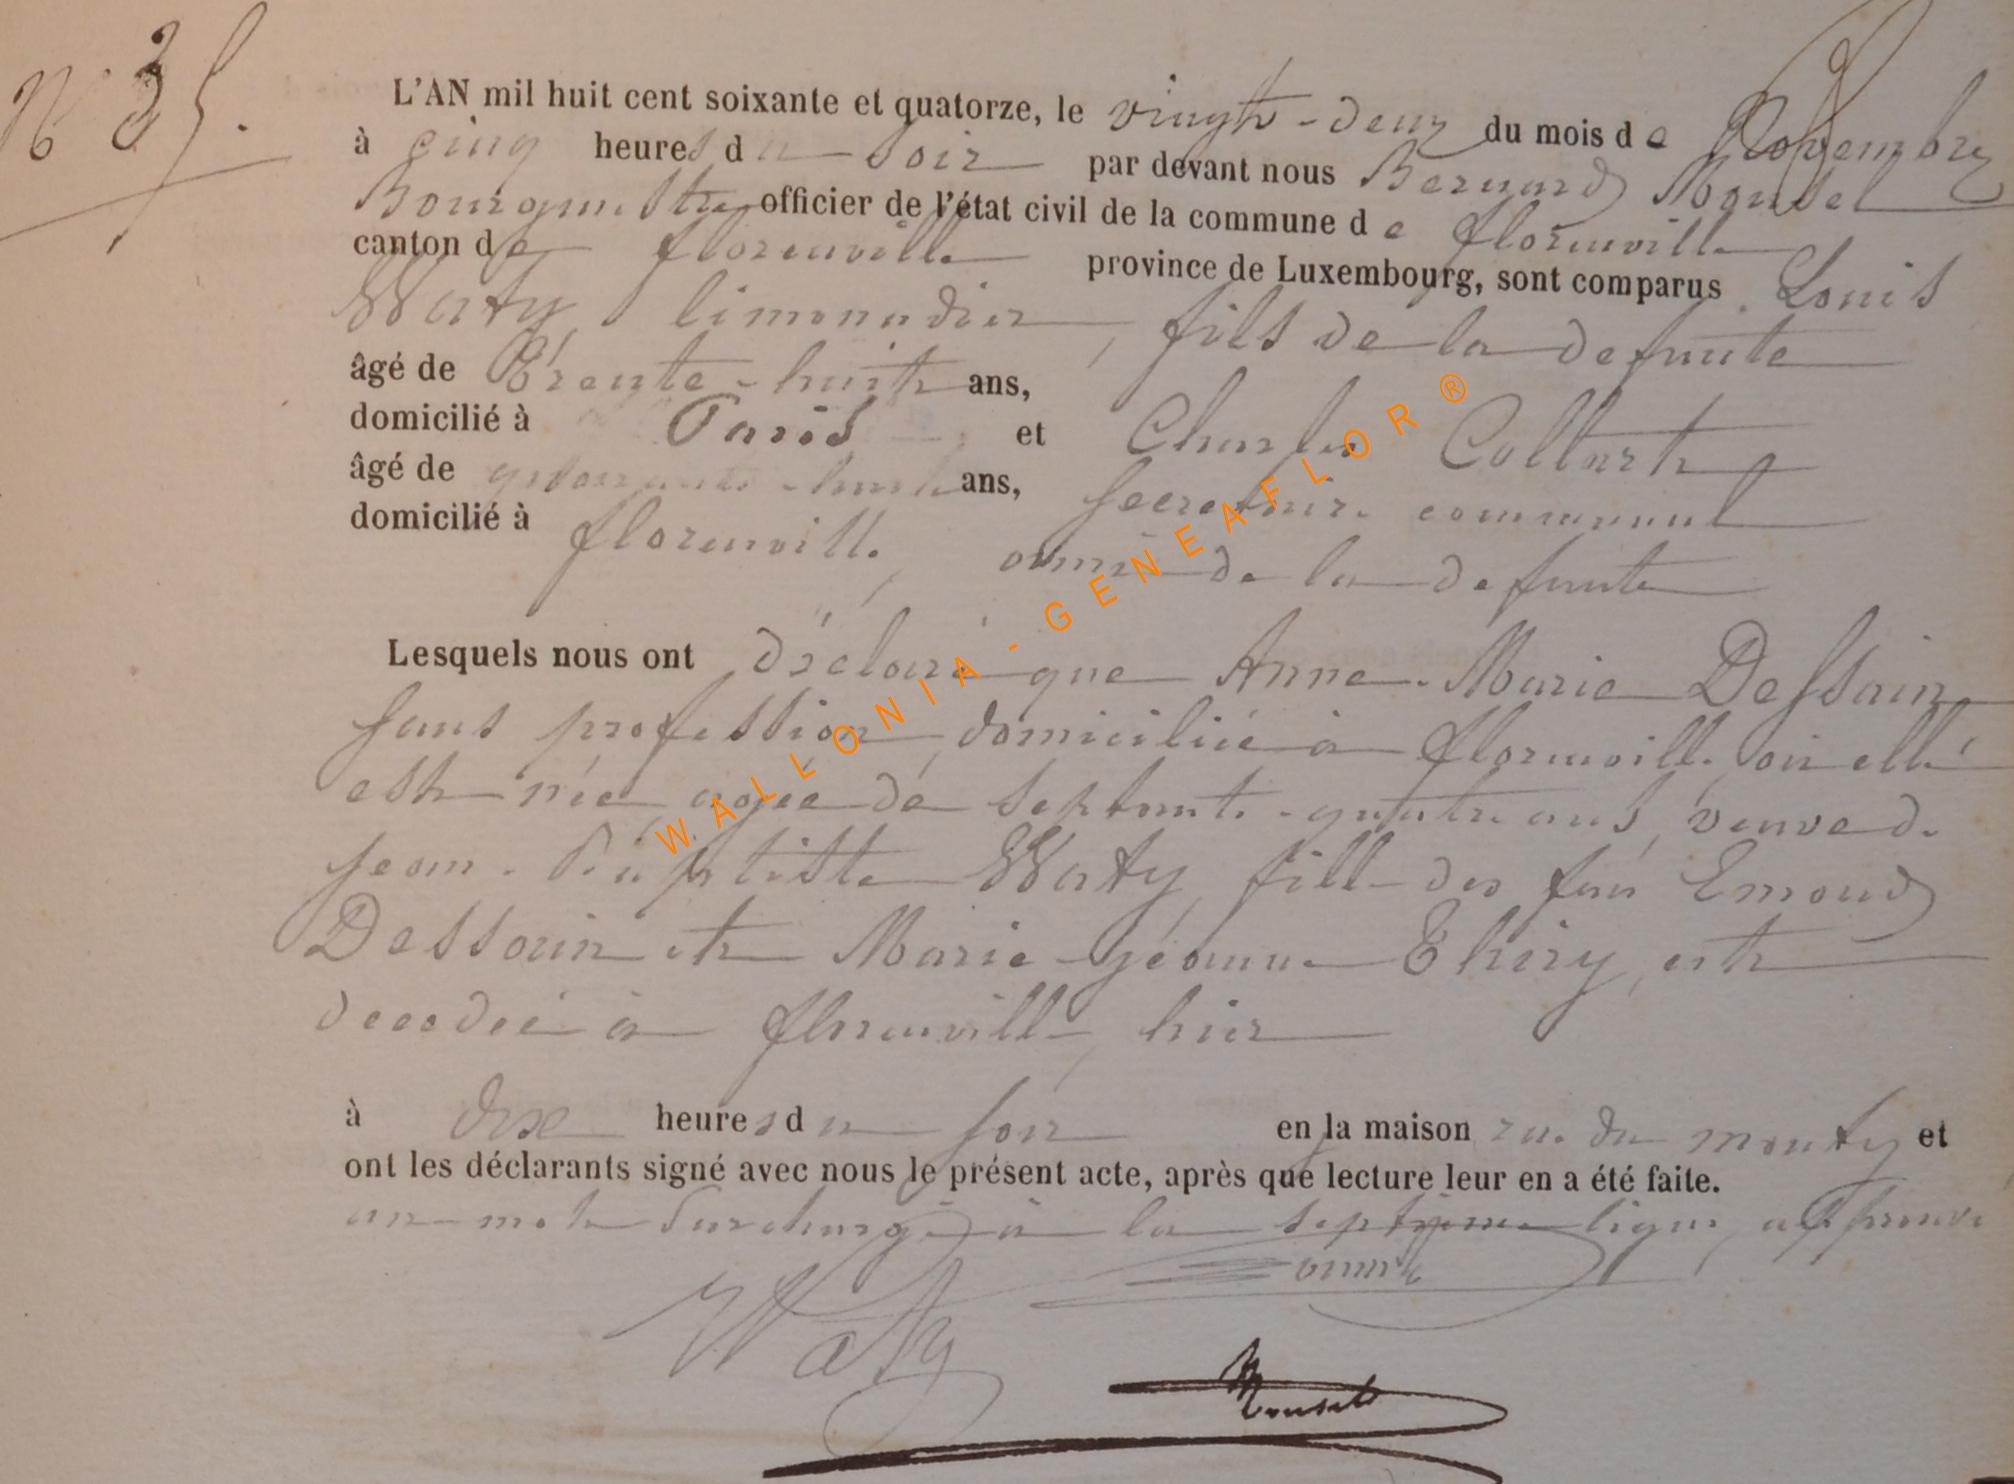 N° 35.
L'AN mil huit cent soixante et quatorze, le vingt-deux du mois de Novembre
à cinq heures du soir par devant nous Bernard Mousel
Bourgmestre officier de l'état civil de la commune de florenville
canton de florenville province de Luxembourg, sont comparus Louis
Waty, limonadier, fils de la defunte
âgé de Trente-huit ans,
domicilié à Paris et Charles Collart
âgé de quarante-huit ans, secretaire communal
domicilié à florenville, ami de la defunte
Lesquels nous ont déclaré que Anne-Marie Dessain
sans profession domiciliée à florenville, où elle
est née agée de septante-quatre ans, veuve de
jean-Baptiste Waty, fille des feus Emond
Dessain et Marie-jeanne Thiry, est
decedée à florenville, hier
à dix heures du soir en la maison rue du monty et
ont les déclarants signé avec nous le présent acte, après que lecture leur en a été faite.
un mot surchargé à la septième ligne, approuvé
Waty
Mousel
WALLONIA-GENEAFLOR®